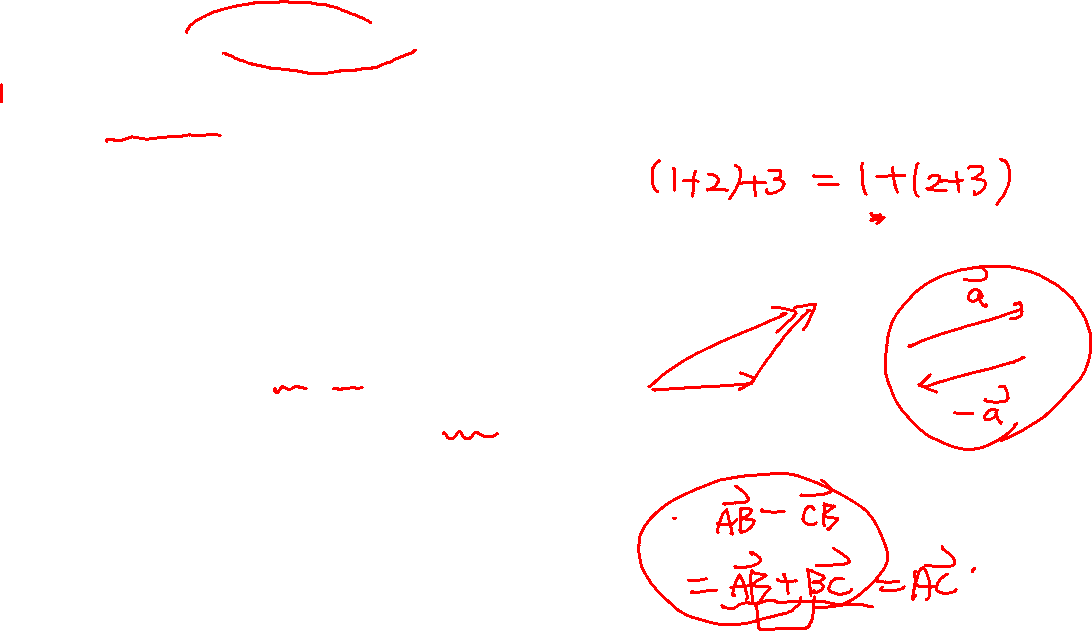 (1+2)+3 = 1+(2+3)
a⃗
-a⃗
A⃗B⃗ - C⃗B⃗
= A⃗B⃗ + B⃗C⃗ = A⃗C⃗.